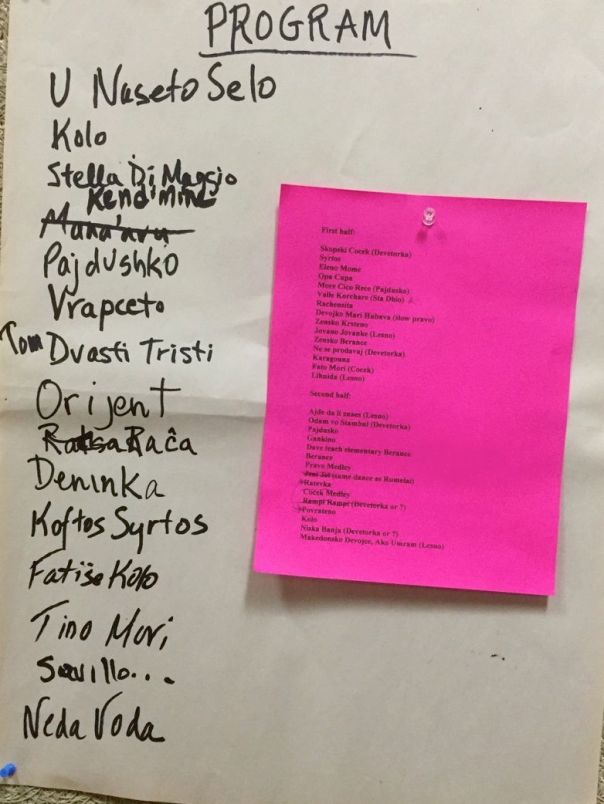 PROGRAM
U Naseto Selo
Kolo
Stella Di Maggio
Kendime
Pajdushko
Vrapceto
Tom Dvasti Tristi
Orijent
Rača
Deninka
Koftos Syrtos
Fatiše Kolo
Tino Mori
Neda Voda
First half:
Skopski Cocek (Devetorka)
Syrtos
Eleno Mome
Opa Cupa
More Cico Rece (Pajdusko)
Valle Korchare (Sta Dhio)
Rachenitsa
Devojko Mari Hubava (slow pravo)
Zensko Krsteno
Jovano Jovanke (Lesno)
Zensko Berance
Ne se prodavaj (Devetorka)
Karagouna
Fato Mori (Cocek)
Lihnida (Lesno)
Second half:
Ajde da li znaes (Lesno)
Odam vo Stambul (Devetorka)
Pajdusko
Gankino
Dave teach elementary Berance
Berance
Pravo Medley
Jeni Jol (same dance as Rumelaj)
Ratevka
Cocek Medley
Rampi Rampi (Devetorka or ?)
Povrateno
Kolo
Niska Banja (Devetorka or ?)
Makedonsko Devojce, Ako Umram (Lesno)